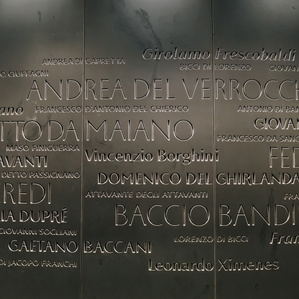 Girolamo Frescobaldi
ANDREA DI CAPRETTA
BICCI DI LORENZO GIOVA
ANDREA DEL VERROCCH
FRANCESCO D'ANTONIO DEL CHIERICO ANTONIO DI BA
TTO DA MAIANO GIOVAN
FRANCESCO DA SANG
MASO FINIGUERRA
AVANTI Vincenzio Borghini FEL
DETTO PASSIGNANO DOMENICO DEL GHIRLANDA
ATTAVANTE DEGLI ATTAVANTI
REDI
LA DUPRÉ BACCIO BANDI
GIOVANNI SOGLIANI LORENZO DI BICCI Fran
GAETANO BACCANI
DI JACOPO FRANCHI Leonardo Ximenes